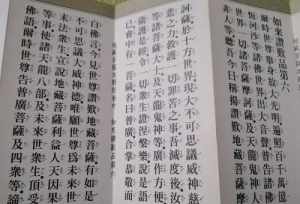 如來讚歎品第六
爾時世尊舉身放大光明遍照百千萬億
恆河沙等諸佛世界出大音聲普告諸佛
世界一切諸菩薩摩訶薩及天龍鬼神人
非人等聽吾今日稱揚讚歎地藏菩薩摩
訶薩於十方世界現大不可思議威神慈
悲之力救護一切罪苦之事吾滅度後汝
等諸菩薩大士及天龍鬼神等廣作方便
衛護是經令一切眾生證涅槃樂說是語
已會中有一菩薩名曰普廣合掌恭敬而
白佛言今見世尊讚歎地藏菩薩有如是
不可思議大威神德唯願世尊為未來世
末法眾生宣說地藏菩薩利益人天因果
等事使諸天龍八部及未來世眾生頂受
佛語爾時世尊告普廣菩薩及四眾等諦